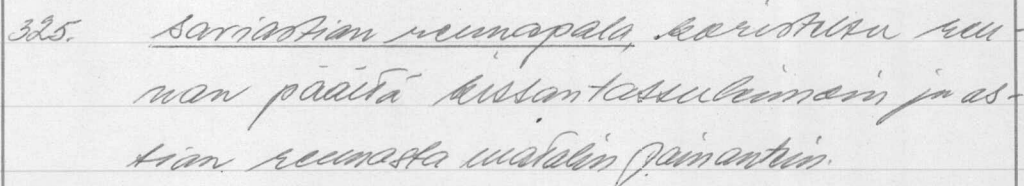 325. saviastian reunapala, koristeltu reu-
nan päältä kissantassukuvioin ja as-
tian reunasta matalin painantein.